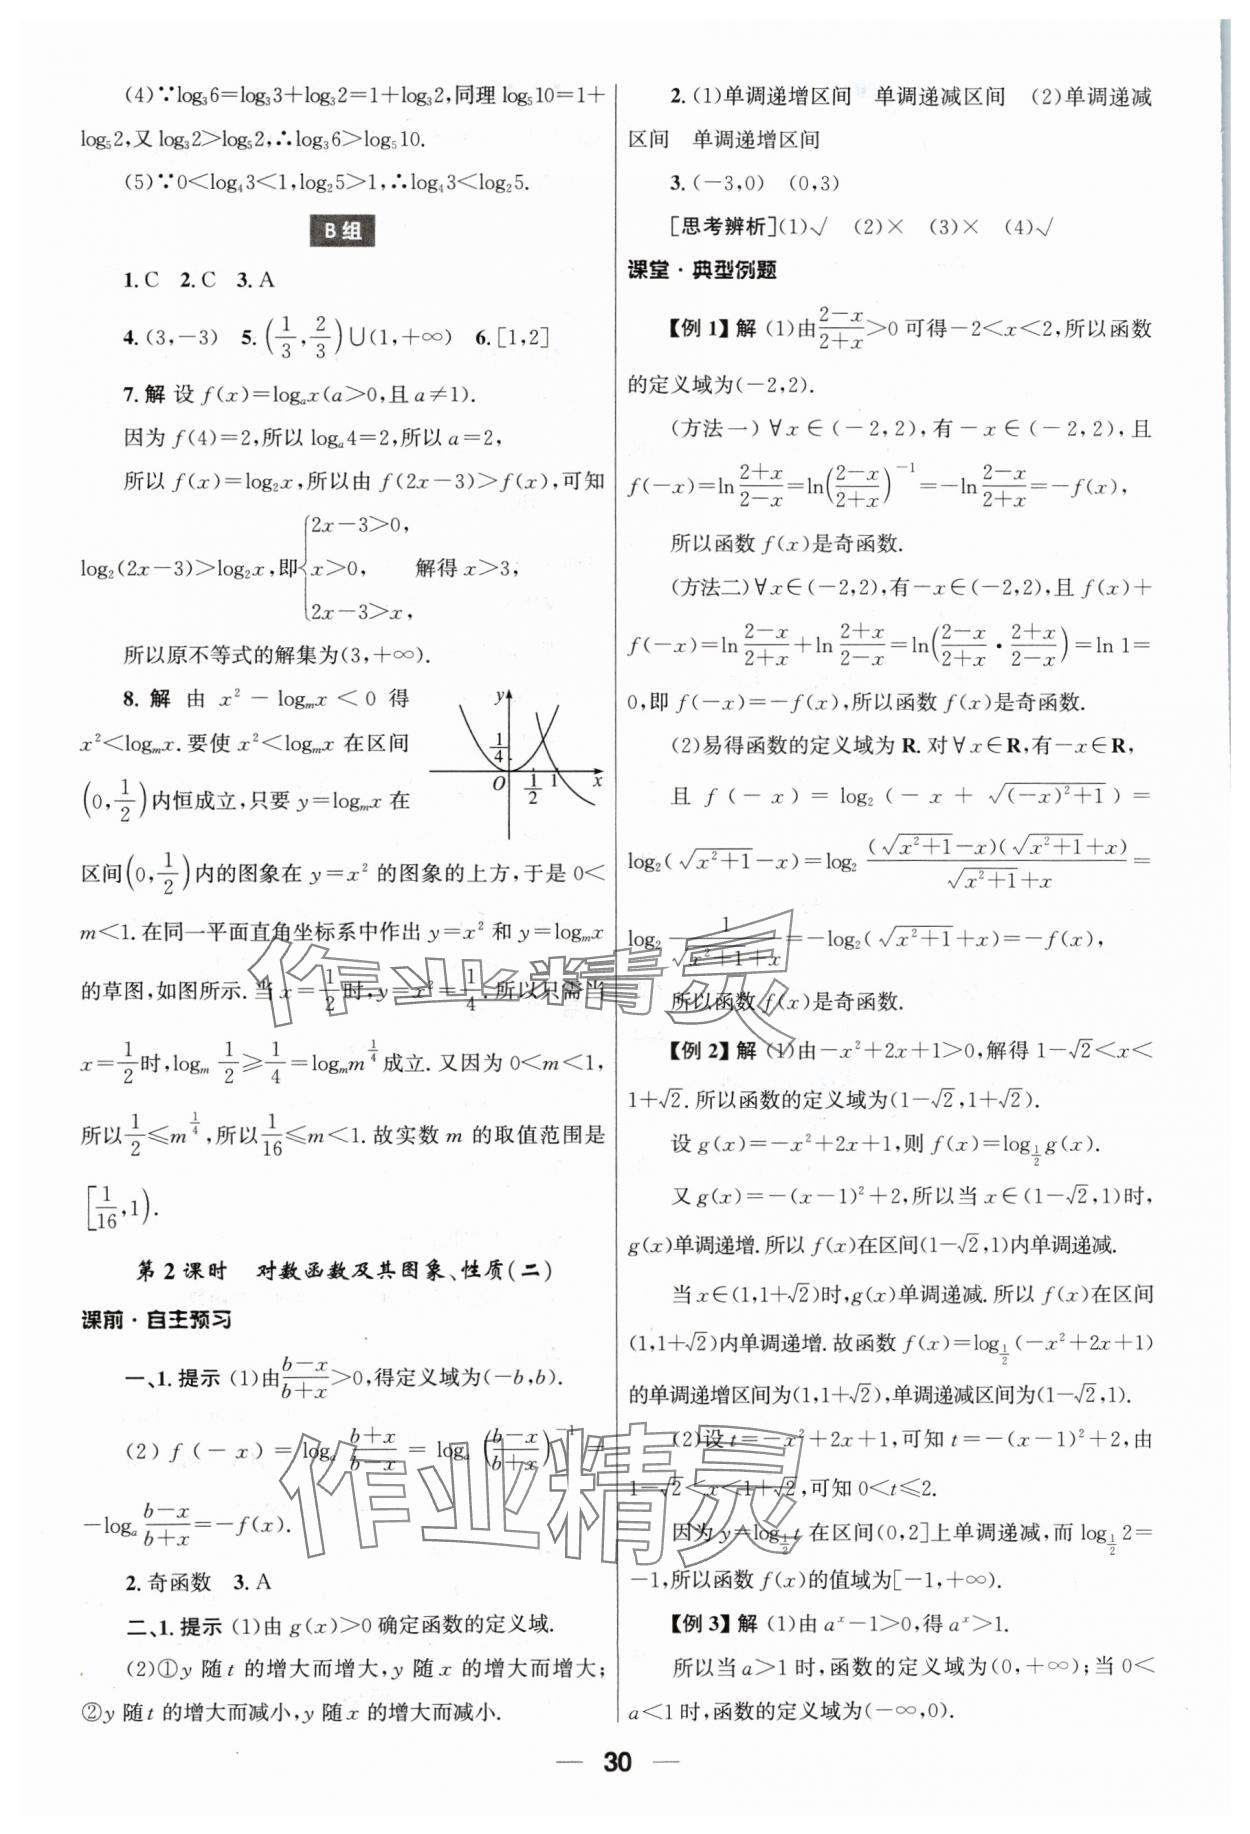 (4)∵log₃6=log₃3+log₃2=1+log₃2,同理 log₅10=1+
log₅2,又 log₃2>log₅2,∴log₃6>log₅10.
(5)∵0<log₄3<1,log₂5>1,∴log₄3<log₂5.
B组
1.C 2.C 3.A
4.(3,-3) 5.(1/3,2/3)∪(1,+∞) 6.[1,2]
7.解 设 f(x)=logₐx(a>0,且 a≠1).
因为 f(4)=2,所以 logₐ4=2,所以 a=2,
所以 f(x)=log₂x,所以由 f(2x-3)>f(x),可知
log₂(2x-3)>log₂x,即{2x-3>0, x>0, 2x-3>x, 解得 x>3,
所以原不等式的解集为(3,+∞).
8.解 由 x²-logₘx<0 得
x²<logₘx.要使 x²<logₘx 在区间
(0,1/2)内恒成立,只要 y=logₘx 在
y 1/4 O 1/2 1 x
区间(0,1/2)内的图象在 y=x² 的图象的上方,于是 0<
m<1.在同一平面直角坐标系中作出 y=x² 和 y=logₘx
的草图,如图所示.当 x=1/2时,y=x²=1/4.所以只需当
x=1/2时,logₘ1/2≥1/4=logₘm^(1/4)成立.又因为 0<m<1,
所以1/2≤m^(1/4),所以1/16≤m<1.故实数 m 的取值范围是
[1/16,1).
第2课时 对数函数及其图象、性质(二)
课前·自主预习
一、1.提示 (1)由(b-x)/(b+x)>0,得定义域为(-b,b).
(2) f(-x)=logₐ(b+x)/(b-x)=logₐ((b-x)/(b+x))⁻¹=
-logₐ(b-x)/(b+x)=-f(x).
2.奇函数 3.A
二、1.提示 (1)由 g(x)>0 确定函数的定义域.
(2)①y 随 t 的增大而增大,y 随 x 的增大而增大;
②y 随 t 的增大而减小,y 随 x 的增大而减小.
2.(1)单调递增区间 单调递减区间 (2)单调递减
区间 单调递增区间
3.(-3,0) (0,3)
[思考辨析](1)√ (2)× (3)× (4)√
课堂·典型例题
【例1】解 (1)由(2-x)/(2+x)>0 可得-2<x<2,所以函数
的定义域为(-2,2).
(方法一)∀x∈(-2,2),有-x∈(-2,2),且
f(-x)=ln(2+x)/(2-x)=ln((2-x)/(2+x))⁻¹=-ln(2-x)/(2+x)=-f(x),
所以函数 f(x)是奇函数.
(方法二)∀x∈(-2,2),有-x∈(-2,2),且 f(x)+
f(-x)=ln(2-x)/(2+x)+ln(2+x)/(2-x)=ln((2-x)/(2+x)·(2+x)/(2-x))=ln 1=
0,即 f(-x)=-f(x),所以函数 f(x)是奇函数.
(2)易得函数的定义域为 R.对∀x∈R,有-x∈R,
且 f(-x)=log₂(-x+√((-x)²+1))=
log₂(√(x²+1)-x)=log₂ (√(x²+1)-x)(√(x²+1)+x)/(√(x²+1)+x)=
log₂ 1/(√(x²+1)+x)=-log₂(√(x²+1)+x)=-f(x),
所以函数 f(x)是奇函数.
【例2】解 (1)由-x²+2x+1>0,解得 1-√2<x<
1+√2.所以函数的定义域为(1-√2,1+√2).
设 g(x)=-x²+2x+1,则 f(x)=log_(1/2) g(x).
又 g(x)=-(x-1)²+2,所以当 x∈(1-√2,1)时,
g(x)单调递增.所以 f(x)在区间(1-√2,1)内单调递减.
当 x∈(1,1+√2)时,g(x)单调递减.所以 f(x)在区间
(1,1+√2)内单调递增.故函数 f(x)=log_(1/2)(-x²+2x+1)
的单调递增区间为(1,1+√2),单调递减区间为(1-√2,1).
(2)设 t=-x²+2x+1,可知 t=-(x-1)²+2,由
1-√2<x<1+√2,可知 0<t≤2.
因为 y=log_(1/2) t 在区间(0,2]上单调递减,而 log_(1/2) 2=
-1,所以函数 f(x)的值域为[-1,+∞).
【例3】解 (1)由 aˣ-1>0,得 aˣ>1.
所以当 a>1 时,函数的定义域为(0,+∞);当 0<
a<1 时,函数的定义域为(-∞,0).
作业精灵
作业精灵
— 30 —